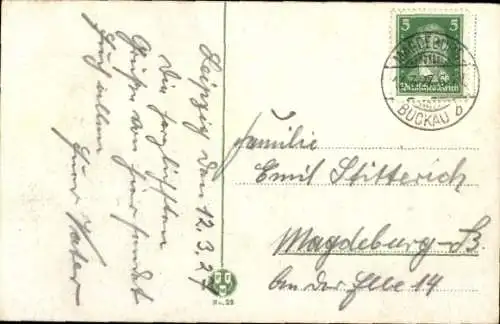 Leipzig den 12. 3. 27
Die herzlichsten
Grüße von hier sendet
Euch allen
Euer Vater
5 5
Deutsches Reich
MAGDEBURG
BUCKAU b
Familie
Emil Stitterich
Magdeburg-B.
An der Elbe 14
No. 25